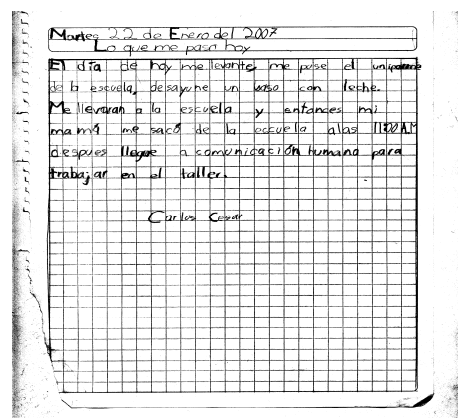 Martes 22 de Enero del 2007
Lo que me paso hoy
El día de hoy me levante, me puse el uniforme
de la escuela, desayune un vaso con leche.
Me llevaran a la escuela y entonces mi
mamá me sacó de la escuela alas 11:00 AM
despues llegue a comunicación humana para
trabajar en el taller.
Carlos Cesar